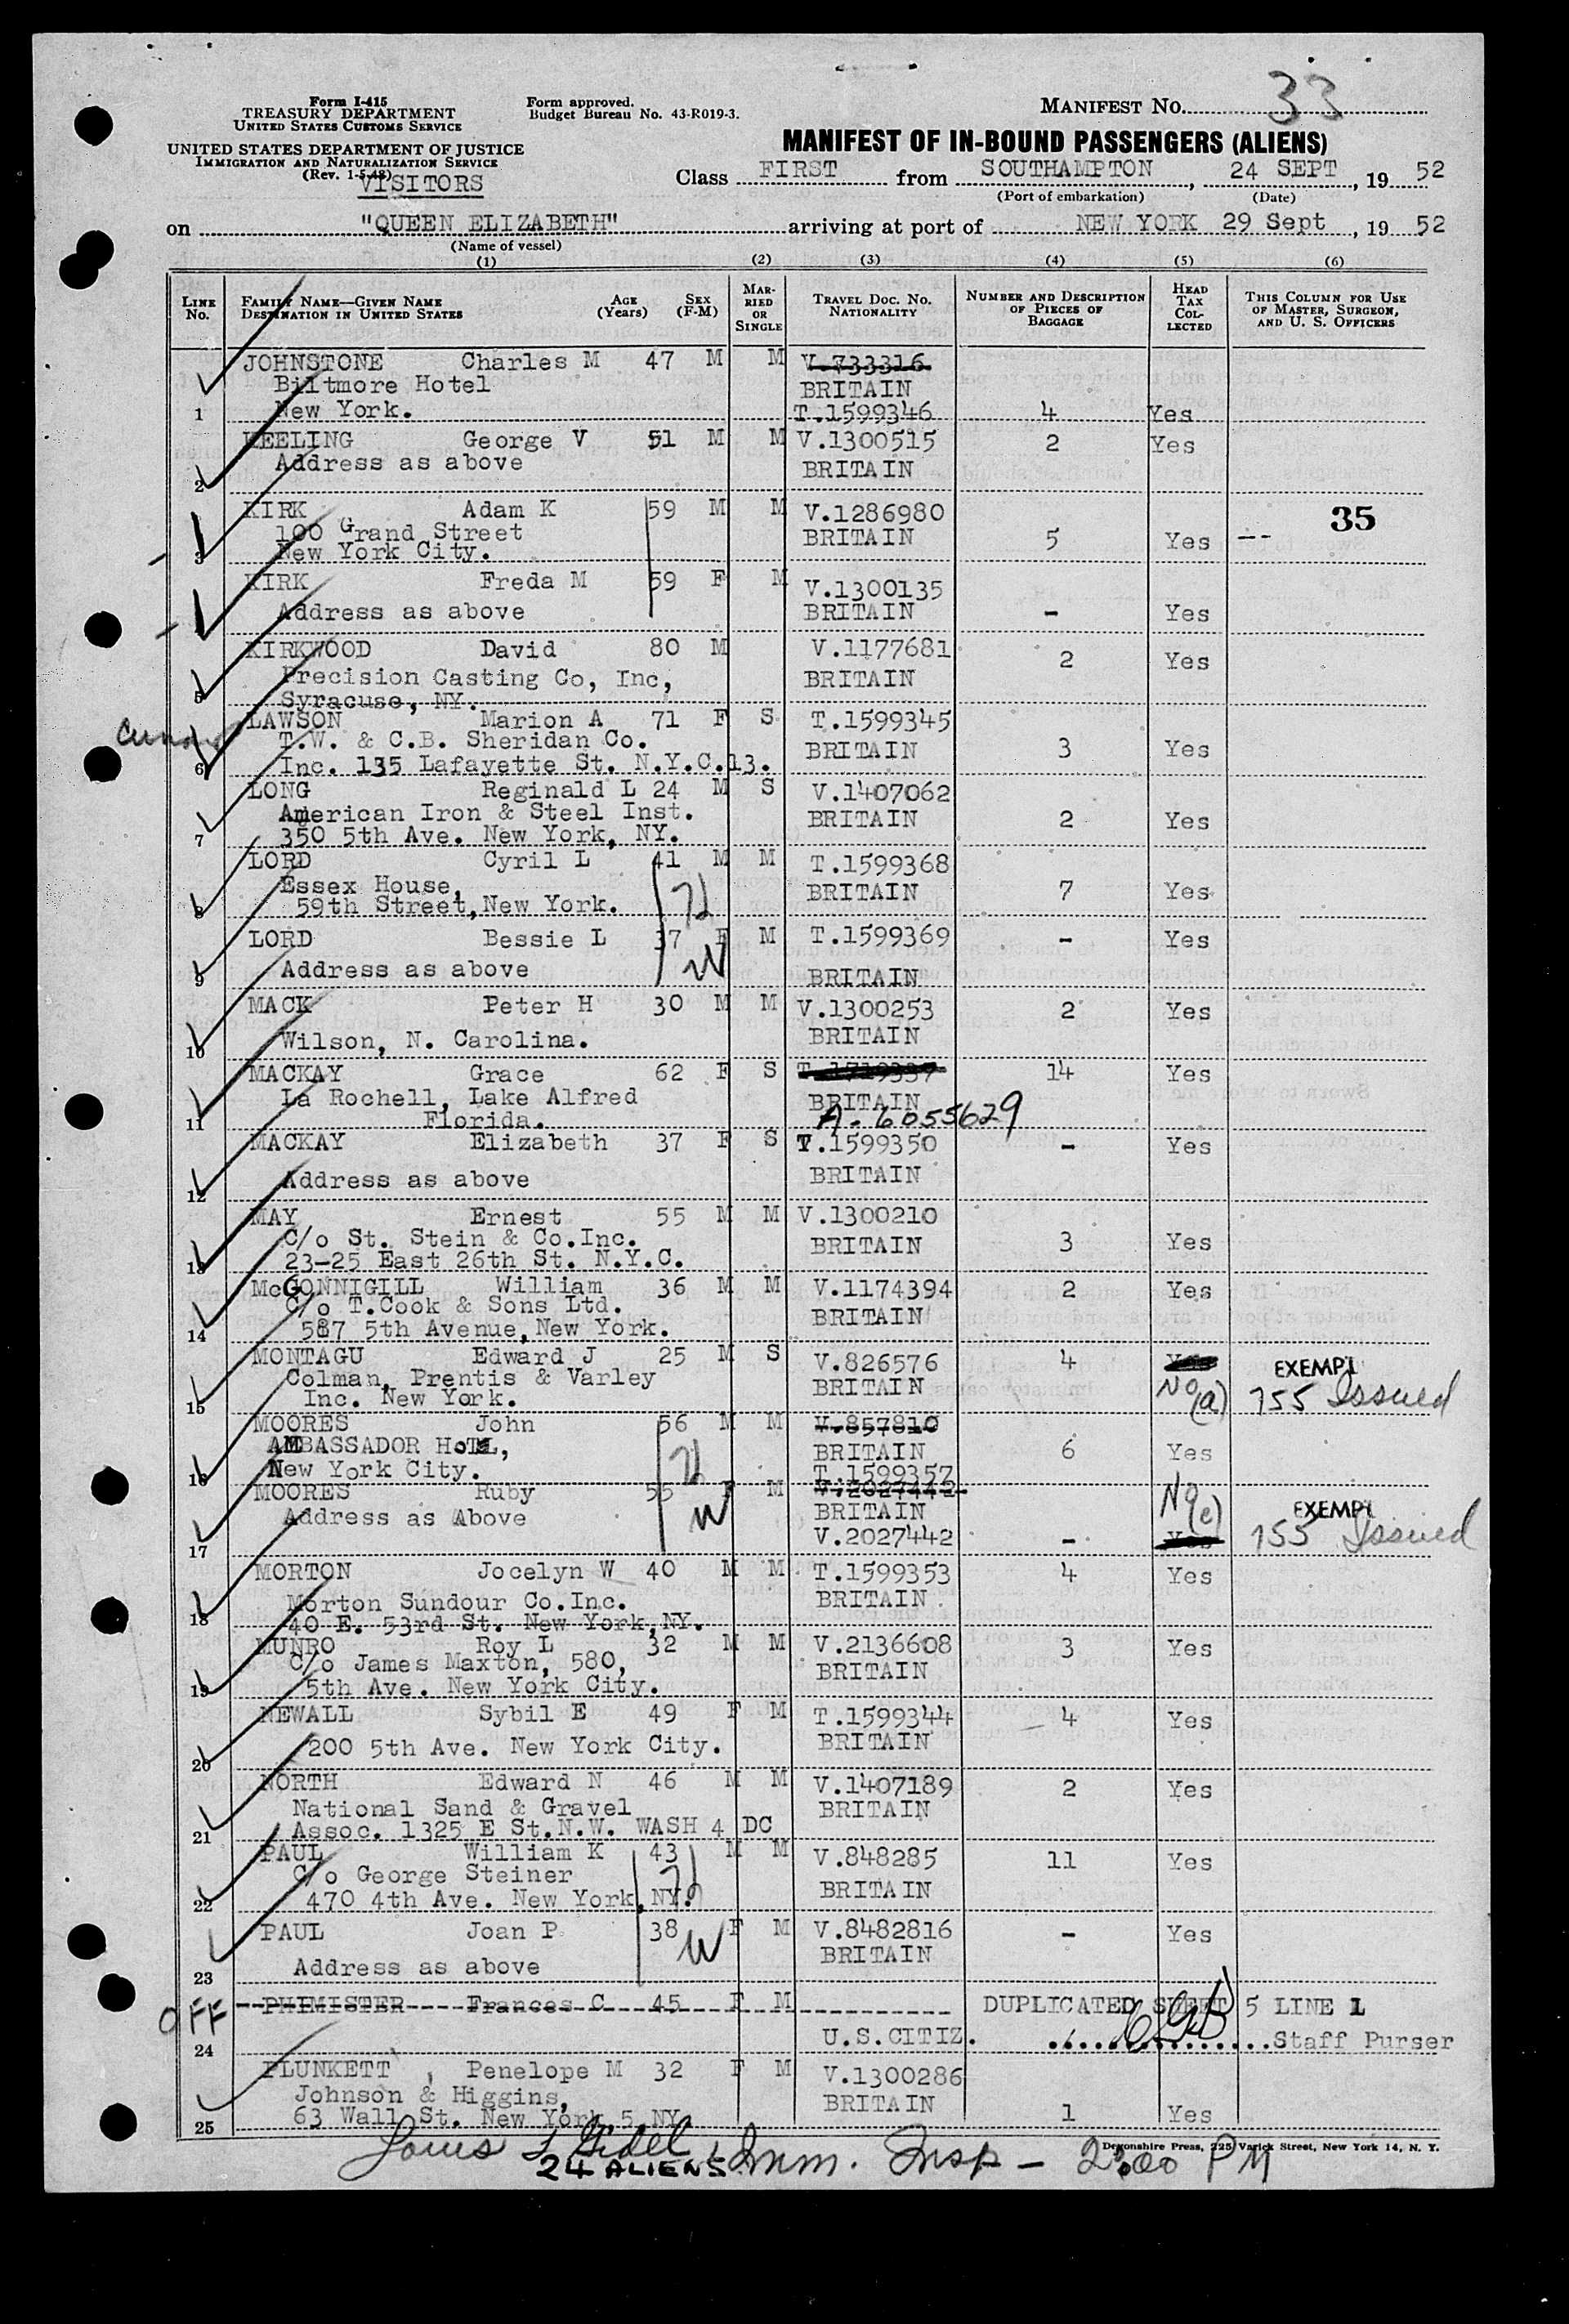 Form I-415
TREASURY DEPARTMENT
UNITED STATES CUSTOMS SERVICE
UNITED STATES DEPARTMENT OF JUSTICE
IMMIGRATION AND NATURALIZATION SERVICE
(Rev. 1-5-48)
VISITORS
Form approved.
Budget Bureau No. 43-R019-3.
MANIFEST NO. 33
MANIFEST OF IN-BOUND PASSENGERS (ALIENS)
Class FIRST from SOUTHAMPTON, 24 SEPT, 19 52
(Port of embarkation) (Date)
on "QUEEN ELIZABETH" arriving at port of NEW YORK 29 Sept, 19 52
(Name of vessel)
(1) (2) (3) (4) (5) (6)
LINE No. FAMILY NAME—GIVEN NAME DESTINATION IN UNITED STATES AGE (Years) SEX (F-M) MARRIED OR SINGLE TRAVEL DOC. NO. NATIONALITY NUMBER AND DESCRIPTION OF PIECES OF BAGGAGE HEAD TAX COLLECTED THIS COLUMN FOR USE OF MASTER, SURGEON, AND U. S. OFFICERS
JOHNSTONE Charles M 47 M M V.733316
Biltmore Hotel BRITAIN
1 New York. T.1599346 4 Yes
KEELING George V 51 M M V.1300515 2 Yes
Address as above BRITAIN
2
KIRK Adam K 59 M M V.1286980 35
100 Grand Street BRITAIN
3 New York City. 5 Yes ---
KIRK Freda M 59 F M V.1300135
Address as above BRITAIN - Yes
KIRKWOOD David 80 M V.1177681 2 Yes
Precision Casting Co, Inc, BRITAIN
5 Syracuse, NY.
LAWSON Marion A 71 F S T.1599345
T.W. & C.B. Sheridan Co. BRITAIN 3 Yes
6 Inc. 135 Lafayette St. N.Y.C.13.
LONG Reginald L 24 M S V.1407062
American Iron & Steel Inst. BRITAIN 2 Yes
7 350 5th Ave. New York, NY.
LORD Cyril L 41 M M T.1599368
Essex House, BRITAIN 7 Yes
8 59th Street, New York. H
LORD Bessie L 37 F M T.1599369 - Yes
9 Address as above W BRITAIN
MACK Peter H 30 M M V.1300253 2 Yes
10 Wilson, N. Carolina. BRITAIN
MACKAY Grace 62 F S T.1719337 14 Yes
La Rochell, Lake Alfred BRITAIN
11 Florida. A-6055629
MACKAY Elizabeth 37 F S T.1599350 - Yes
12 Address as above BRITAIN
MAY Ernest 55 M M V.1300210
C/o St. Stein & Co.Inc. BRITAIN 3 Yes
13 23-25 East 26th St. N.Y.C.
McGONNIGILL William 36 M M V.1174394 2 Yes
C/o T.Cook & Sons Ltd. BRITAIN
14 587 5th Avenue, New York.
MONTAGU Edward J 25 M S V.826576 4 Yes EXEMPT
Colman, Prentis & Varley BRITAIN No (a) 755 Issued
15 Inc. New York.
MOORES John 56 M M V.857810
AMBASSADOR HOTEL, BRITAIN 6 Yes
16 New York City. H T.1599357
MOORES Ruby 55 F M V.2027442 No (e) EXEMPT
Address as Above W BRITAIN 755 Issued
17 V.2027442 - Yes
MORTON Jocelyn W 40 M M T.1599353 4 Yes
Morton Sundour Co.Inc. BRITAIN
18 40 E. 53rd St. New York, NY.
MUNRO Roy L 32 M M V.2136608 3 Yes
C/o James Maxton, 580, BRITAIN
19 5th Ave. New York City.
NEWALL Sybil E 49 F M T.1599344 4 Yes
20 200 5th Ave. New York City. BRITAIN
NORTH Edward N 46 M M V.1407189 2 Yes
National Sand & Gravel BRITAIN
21 Assoc. 1325 E St.N.W. WASH 4 DC
PAUL William K 43 M M V.848285 11 Yes
C/o George Steiner BRITAIN
22 470 4th Ave. New York, NY. H
PAUL Joan P 38 F M V.8482816 - Yes
Address as above W BRITAIN
23
OFF PHIMISTER Frances C 45 F M DUPLICATED SHEET 5 LINE 1
24 U.S.CITIZ. Staff Purser
PLUNKETT, Penelope M 32 F M V.1300286
Johnson & Higgins, BRITAIN
25 63 Wall St. New York, 5, NY. 1 Yes
Devonshire Press, 225 Varick Street, New York 14, N. Y.
Louis L Gidel, Imm. Insp - 2:00 PM
24 ALIENS